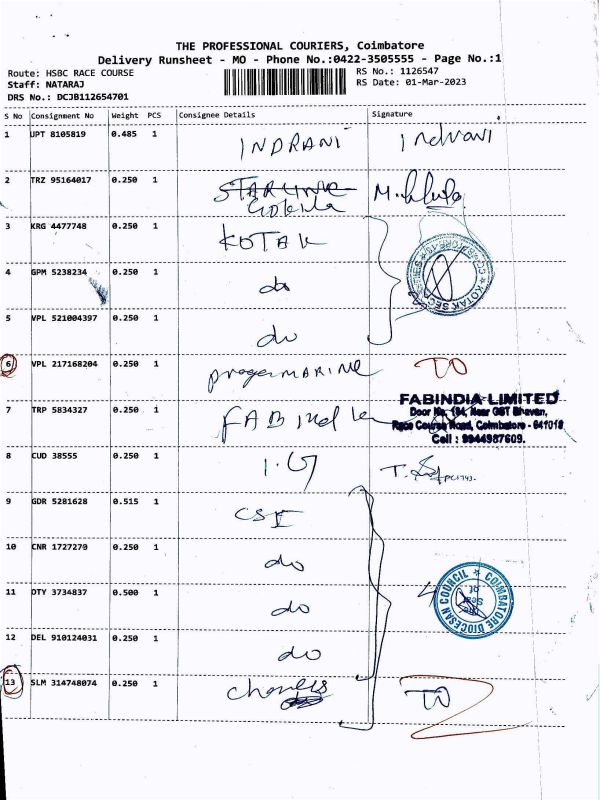 THE PROFESSIONAL COURIERS, Coimbatore
Delivery Runsheet - MO - Phone No.:0422-3505555 - Page No.:1
Route: HSBC RACE COURSE
RS No.: 1126547
Staff: NATARAJ
RS Date: 01-Mar-2023
DRS No.: DCJB112654701
S No Consignment No Weight PCS Consignee Details Signature
1 JPT 8105819 0.485 1 INDRANI Indrani
2 TRZ 95164017 0.250 1
3 KRG 4477748 0.250 1 KOTAK
4 GPM 5238234 0.250 1 do
5 VPL 521004397 0.250 1 do
6 VPL 217168204 0.250 1 MARINE TO
7 TRP 5834327 0.250 1 FABindia
FABINDIA LIMITED
Door No. 184, Near GST Bhavan,
Race Course Road, Coimbatore - 641018
Cell : 9944987609.
8 CUD 38555 0.250 1 I.G
9 GDR 5281628 0.515 1 CSI
10 CNR 1727270 0.250 1 do
11 DTY 3734837 0.500 1 do
COIMBATORE DIOCESAN COUNCIL
12 DEL 910124031 0.250 1 do
13 SLM 314748074 0.250 1 TO